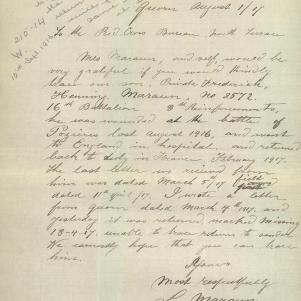 Quorn August 1/17
210-14
W.
10th Sept 1916
To the Red Cross Bureau North Terrace
Mrs Maraun, and self, would be
very grateful if you would kindly
our son, Private Frederick,
Henning Maraun, No 2572
16th Battalion 8th Reinforcements,
he was wounded at the battle of
Pozieres last August 1916, and went
to England in hospital, and returned
back to duty in France, February 1917.
The last letter we recived from
him was dated March 7/17 a field
dated 11th 17, I wrote a letter
from Quorn dated March 4th 1917, and
yesterday it was returned marked Missing
13-4-17. unable to trace return to sender.
We earnestly hope that you can trace
him.
Yours
most respectfully
Maraun